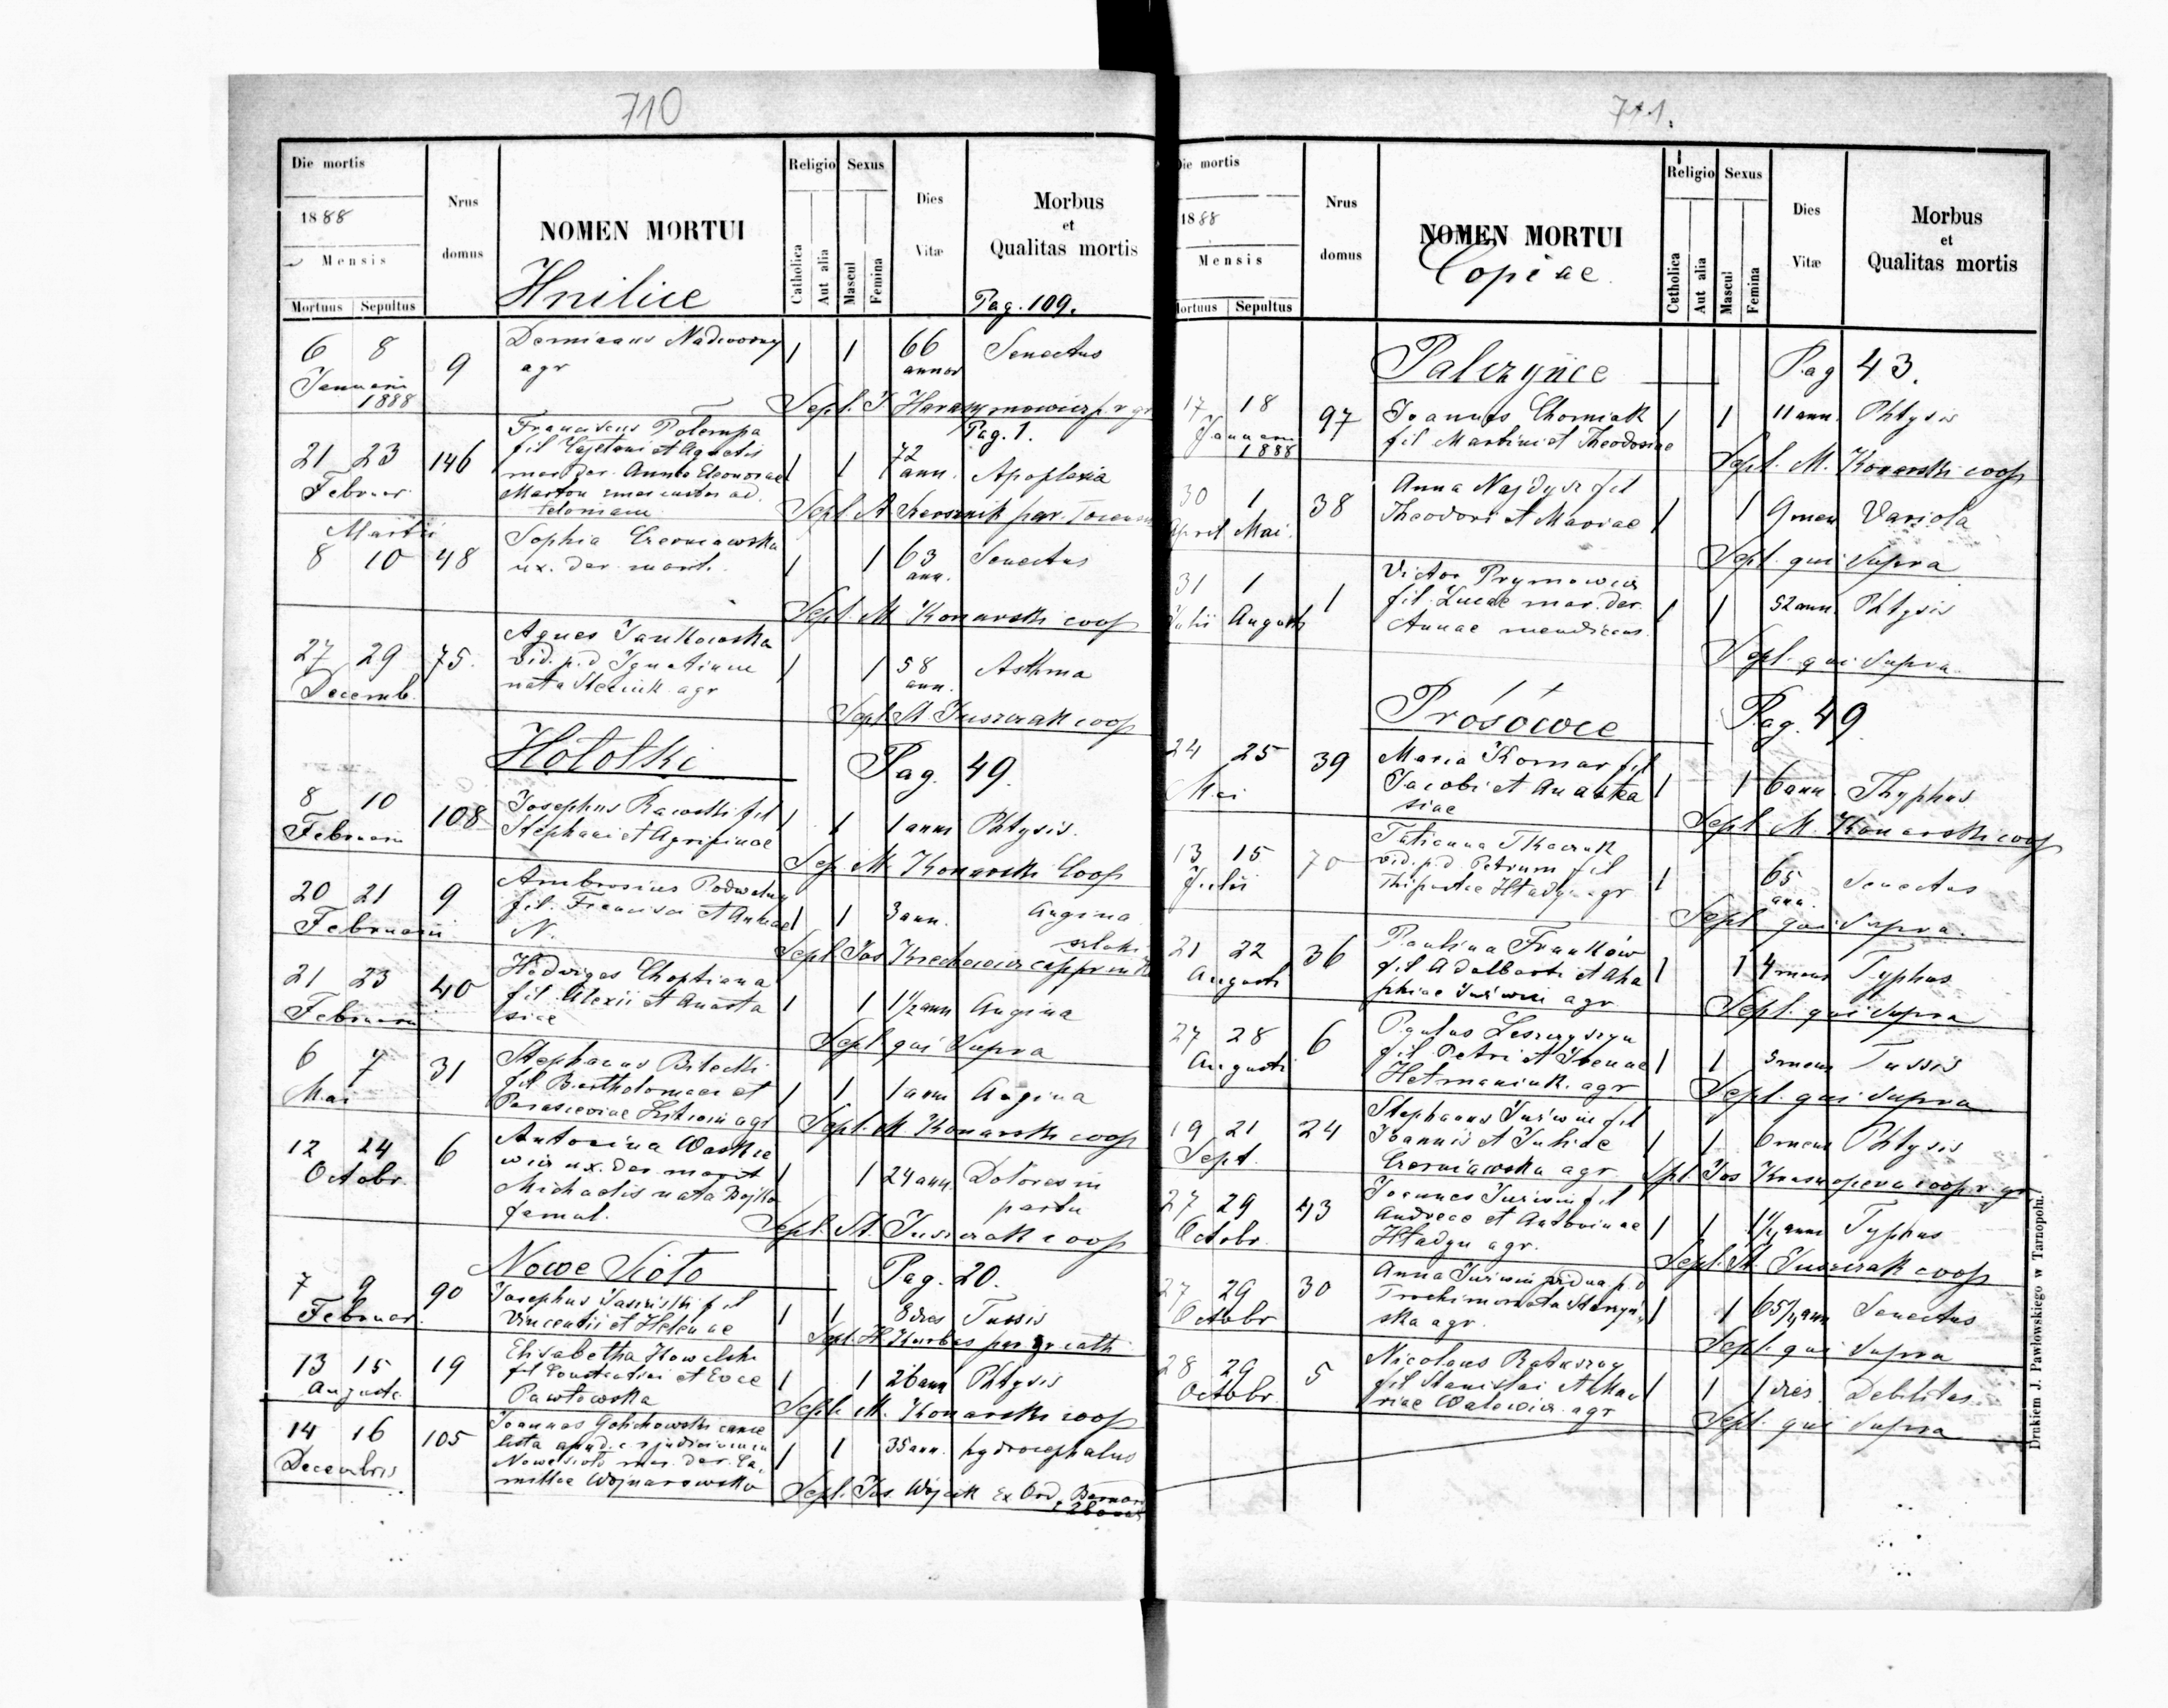 710
Die mortis
1888
Mensis
Mortuus Sepultus
Nrus domus
NOMEN MORTUI
Hnilice
Religio
Catholica
Aut alia
Sexus
Mascul
Femina
Dies Vitæ
Morbus
et
Qualitas mortis
Pag. 109.
6 8 Januarii 1888
9
Demianus Nadworny
agr
1 1 66 annor Senectus
Sept. J Harasymowicz p. r gr
Pag. 1.
21 23 Februar.
146
Franciscus Potempa
fil Cajetani et Agnetis
mar. der. Annae Eleonorae
Marton
1 1 72 ann. Apoplexia
Sept A
Martii
8 10 48
Sophia Czerniawska
ux. der. marit.
1 1 63 ann. Senectus
Sept. M Konarski coop
27 29 Decemb.
75.
Agnes Jankowska
vid. p.d Ignatium
nata agr
1 1 58 ann. Asthma
Sept St Juszczak coop
Hołotki
Pag. 49.
8 10 Februarii
108
Josephus Rawski fil
Stephani et Agripinae
1 1 1 ann Phtysis.
Sep M. Konarski Coop
20 21 Februarii
9
Ambrosius Podwalny
fil. Francisci et Annae
N.
1 1 3 ann. Angina
Sept Jos Krechowicz
21 23 Februarii
40
Hedviges Choptiana
fil. Alexii et Anasta
siae
1 1 1½ ann Angina
Sept qui Supra
6 7 Mai
31
Stephanus Bilecki
fil Bartholomaei et
Parasceviae agr
1 1 1 ann Angina
Sept. M Konarski coop
12 24 Octobr.
6
Antonina Waskie
wicz ux. der. marit
Michaelis nata Bojko
famul.
1 1 24 ann. Dolores in
partu
Sept. St. Juszczak coop
Nowe Sioło
Pag. 20.
7 9 Februar.
90
Josephus Jasiński fil
Vincentii et Helenae
1 1 8 dies Tussis
Sept. H Kurbas par gr cath
13 15 Augusti
19
Elisabetha Kowalska
fil Constantini et Evae
Pawłowska
1 1 26 ann Phtysis
Sept. M. Konarski coop
14 16 Decembris
105
Joannes Golichowski cance
lista apud c. r judicium in
Nowesioło mar. der. Ca
millae Wojnarowska
1 1 35 ann. hydrocephalus
Sept. Jos. Wójcik Ex Ord. Bernar
711.
Die mortis
1888
Mensis
Mortuus Sepultus
Nrus domus
NOMEN MORTUI
Copiae
Religio
Catholica
Aut alia
Sexus
Mascul
Femina
Dies Vitæ
Morbus
et
Qualitas mortis
Palczyńce
Pag 43.
17 18 Januarii 1888
97
Joannes Chomiak
fil Martini et Theodosiae
1 1 11 ann. Phtysis
Sept. M. Konarski coop
30 1 April Mai.
38
Anna Najdysz fil
Theodori et Mariae
1 1 9 men Variola
Sept. qui Supra
31 1 Julii Augusti
1
Victor Prymowicz
fil. Lucae mar. der.
Annae mendicans.
1 1 52 ann. Phtysis
Sept. qui Supra.
Prosowce
Pag. 49
24 25 Mai
39
Maria Komar fil
Jacobi et Anasta
siae
1 1 6 ann Thyphus
Sept M. Konarski coop
13 15 Julii
70
Tatianna Tkaczuk
vid. p.d Petrum fil
Hładyn agr
1 65 ann. Senectus
Sept qui Supra.
21 22 Augusti
36
Paulina Franków
fil Adalberti et Aha
phiae Juświn agr
1 1 4 mens Typhus
Sept. qui Supra
27 28 Augusti
6
Paulus Leszczyszyn
fil. Petri et Irenae
Hetmaniuk. agr
1 1 3 mens Tussis
Sept. qui Supra
19 21 Sept.
24
Stephanus Juświn fil
Joannis et Juliae
Czerniawska agr
1 1 6 mens Phtysis
Spt. Jos Krasnopera coop r. gr
27 29 Octobr.
43
Joannes Juświn fil
Andreae et Antoninae
Hładyn agr.
1 1 1½ anni Typhus
Sept. St. Juszczak coop
27 29 Octobr
30
Anna Juświn vidua p. d
Trochim nata Starzyń
ska agr.
1 1 65½ ann Senectus
Sept. qui Supra
28 29 Octobr.
5
Nicolaus Ratuszny
fil Stanislai et Ma
riae Walewicz. agr
1 1 1 dies. Debilitas
Sept. qui Supra
Drukiem J. Pawłowskiego w Tarnopolu.